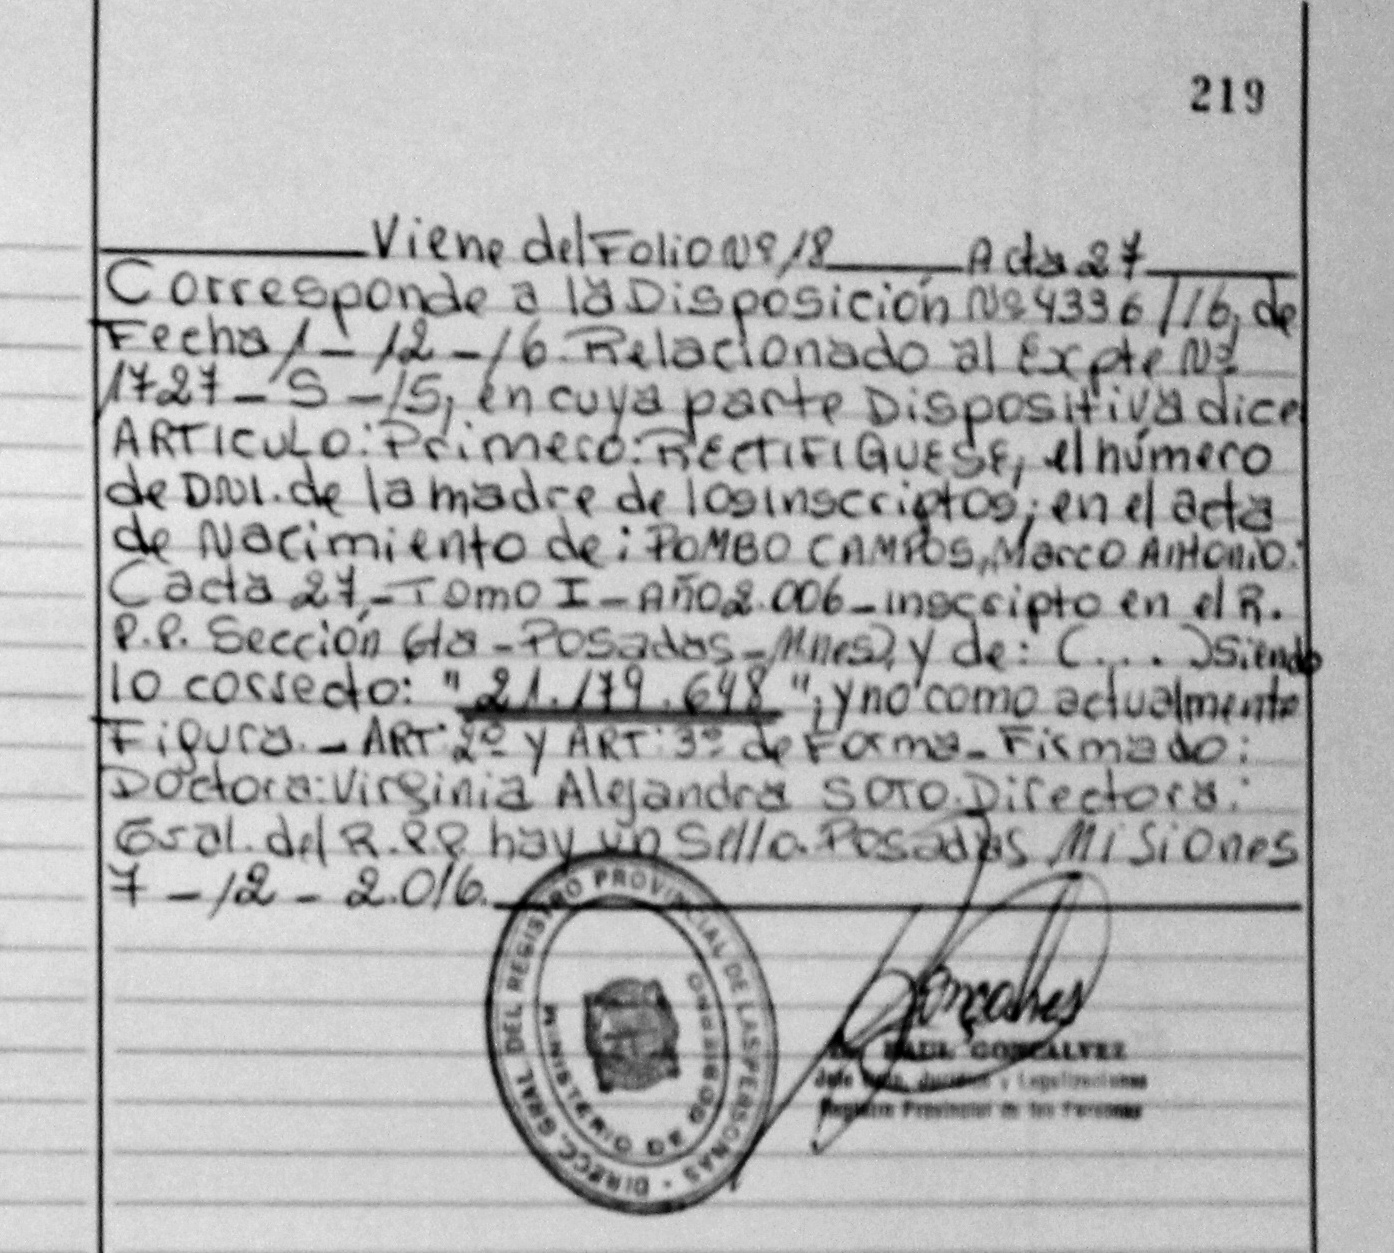 219
Viene del Folio Nº 18 Acta 27
Corresponde a la Disposición Nº 4336/16, de
Fecha 1-12-16. Relacionado al Expte Nº
1727-S-15, en cuya parte Dispositiva dice
ARTICULO: Primero: RECTIFIQUESE, el número
de DNI. de la madre de los inscriptos; en el acta
de Nacimiento de: POMBO CAMPOS, Marco Antonio.
(acta 27,-Tomo I-Año 2.006-inscripto en el R.
P.P. Sección 6ta-Posadas-Mnes), y de: (...) siendo
lo correcto: "21.179.648", y no como actualmente
Figura.-ART: 2º y ART: 3º de Forma-Firmado:
Doctora: Virginia Alejandra SOTO. Directora:
Gral. del R.P.P. hay un Sello. Posadas Misiones
7-12-2.016.
DIRECC. GRAL. DEL REGISTRO PROVINCIAL DE LAS PERSONAS
MINISTERIO DE GOBIERNO
Gonçalves
RAUL GONCALVEZ
Jefe y Legalizaciones
Registro Provincial de las Personas